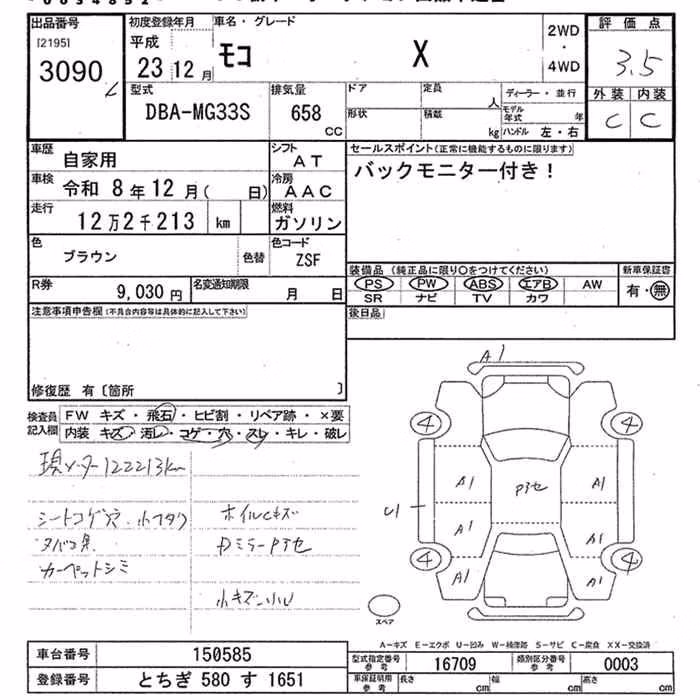 出品番号
[2195]
3090
初度登録年月
平成
23 12 月
車名・グレード
モコ X
2WD
・
4WD
評価点
3.5
外装 内装
C C
型式
DBA-MG33S
排気量
658
CC
ドア
定員
人
形状
積載
kg
ディーラー・並行
モデル年式 年
ハンドル 左・右
車歴
自家用
シフト
AT
車検
令和 8年12月( 日)
冷房
AAC
走行
12万2千213 km
燃料
ガソリン
色
ブラウン
色替
色コード
ZSF
R券
9,030 円
名変通知期限
月 日
セールスポイント(正常に機能するものに限ります)
バックモニター付き!
装備品 (純正品に限り○をつけてください)
PS PW ABS エアB AW
SR ナビ TV カワ
新車保証書
有・無
後日品
注意事項申告欄(不具合内容等は具体的に記入して下さい)
修復歴 有〔箇所 〕
検査員
記入欄
FW キズ・飛石・ヒビ割・リペア跡・×要
内装 キズ・汚レ・コゲ・穴・スレ・キレ・破レ
現メーター122213km
シートコゲ穴・
タバコ臭
カーペットシミ
ホイルキズ
DミラーPアセ
小キズ・小凹
A1
4 4
A1 A1
Pアセ
U1
A1 A1
4 4
A1 A1
スペア
A-キズ E-エクボ U-凹み W-補修跡 S-サビ C-腐食 XX-交換済
車台番号
150585
登録番号
とちぎ 580 す 1651
型式指定番号
参考
16709
類別区分番号
参考
0003
車庫証明用
参考
長さ cm
幅 cm
高さ cm